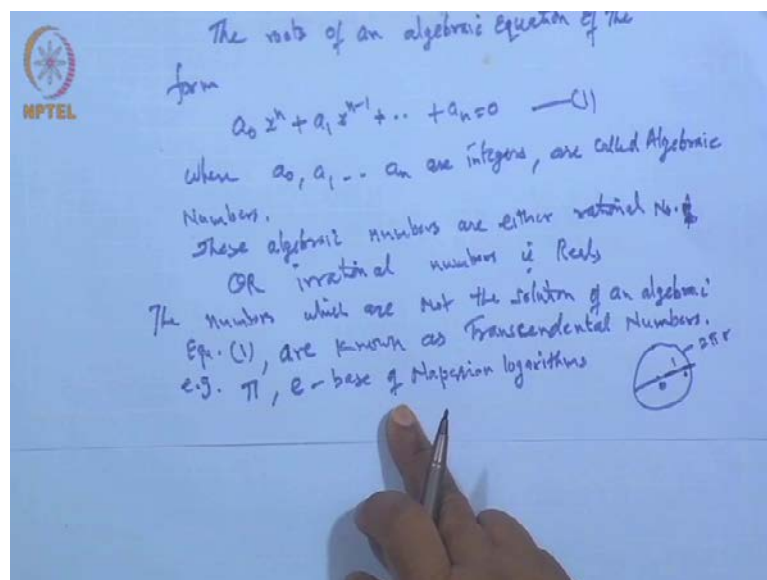 NPTEL
The roots of an algebraic equation of the
form
a₀ xⁿ + a₁ xⁿ⁻¹ + .. + aₙ = 0 —(1)
where a₀, a₁ -- aₙ are integers, are called Algebraic
Numbers.
These algebraic numbers are either rational No.
OR irrational numbers i Reals
The numbers which are not the solution of an algebraic
Equ. (1), are known as Transcendental Numbers.
e.g. π, e - base of Naperian logarithms
2πr